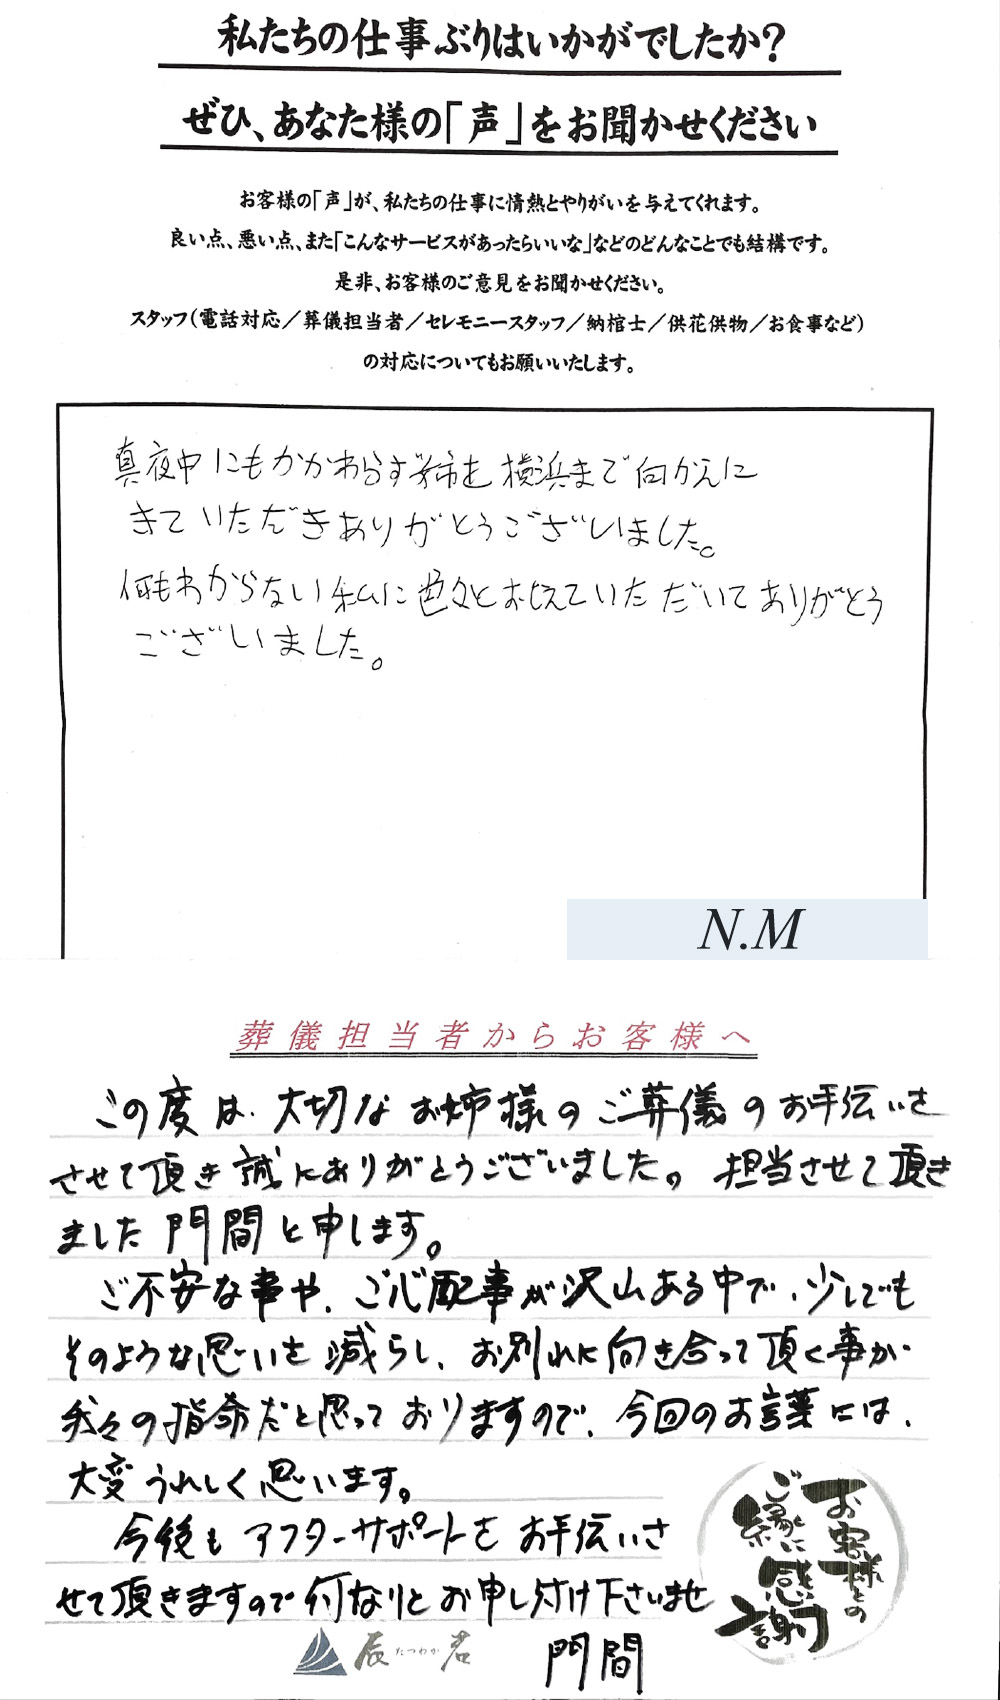 私たちの仕事ぶりはいかがでしたか?
ぜひ、あなた様の「声」をお聞かせください
お客様の「声」が、私たちの仕事に情熱とやりがいを与えてくれます。
良い点、悪い点、また「こんなサービスがあったらいいな」などのどんなことでも結構です。
是非、お客様のご意見をお聞かせください。
スタッフ(電話対応/葬儀担当者/セレモニースタッフ/納棺士/供花供物/お食事など)
の対応についてもお願いいたします。
真夜中にもかかわらず姉を横浜まで向かえに
きていただきありがとうございました。
何もわからない私に色々とおしえていただいてありがとう
ございました。
N.M
葬儀担当者からお客様へ
この度は、大切なお姉様のご葬儀のお手伝いを
させて頂き誠にありがとうございました。担当させて頂き
ました門間と申します。
ご不安な事や、ご心配事が沢山ある中で、少しでも
そのような思いを減らし、お別れに向き合って頂く事が
我々の指命だと思っておりますので、今回のお言葉には、
大変うれしく思います。
今後もアフターサポートをお手伝いさ
せて頂きますので何なりとお申し付け下さいませ
門間
辰若
たつわか
お客様との
ご縁に
感謝